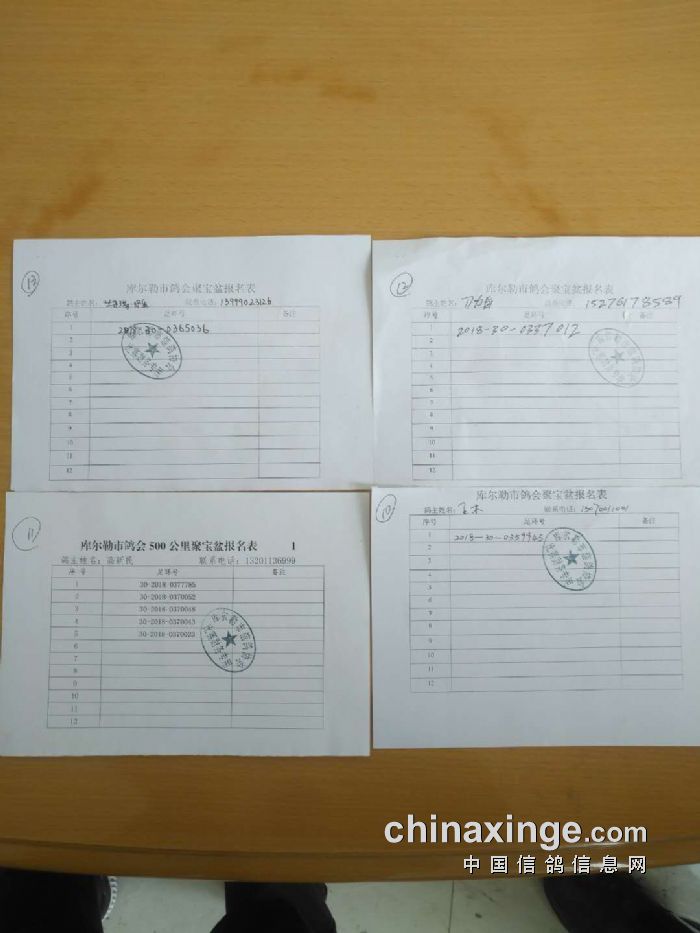 13
库尔勒市鸽会聚宝盆报名表
鸽主姓名: 联系电话: 13999023126
序号 足环号 备注
1 2018-30-0365036
2
3
4
5
6
7
8
9
10
11
12
12
库尔勒市鸽会聚宝盆报名表
鸽主姓名: 联系电话: 15276178589
序号 足环号 备注
1 2018-30-0337012
2
3
4
5
6
7
8
9
10
11
12
11
库尔勒市鸽会 500 公里聚宝盆报名表 1
鸽主姓名: 联系电话: 13201136999
序 号 足环号 备注
1 30-2018-0377785
2 30-2018-0370052
3 30-2018-0370048
4 30-2018-0370043
5 30-2018-0370023
6
7
8
9
10
11
12
10
库尔勒市鸽会聚宝盆报名表
鸽主姓名: 联系电话:
序号 足环号 备注
1 2018-30-0359945
2
3
4
5
6
7
8
9
10
11
12
chinaxinge.com
中国信鸽信息网